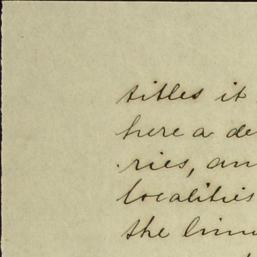 titles it
here a de
ries, an
localities
the limi